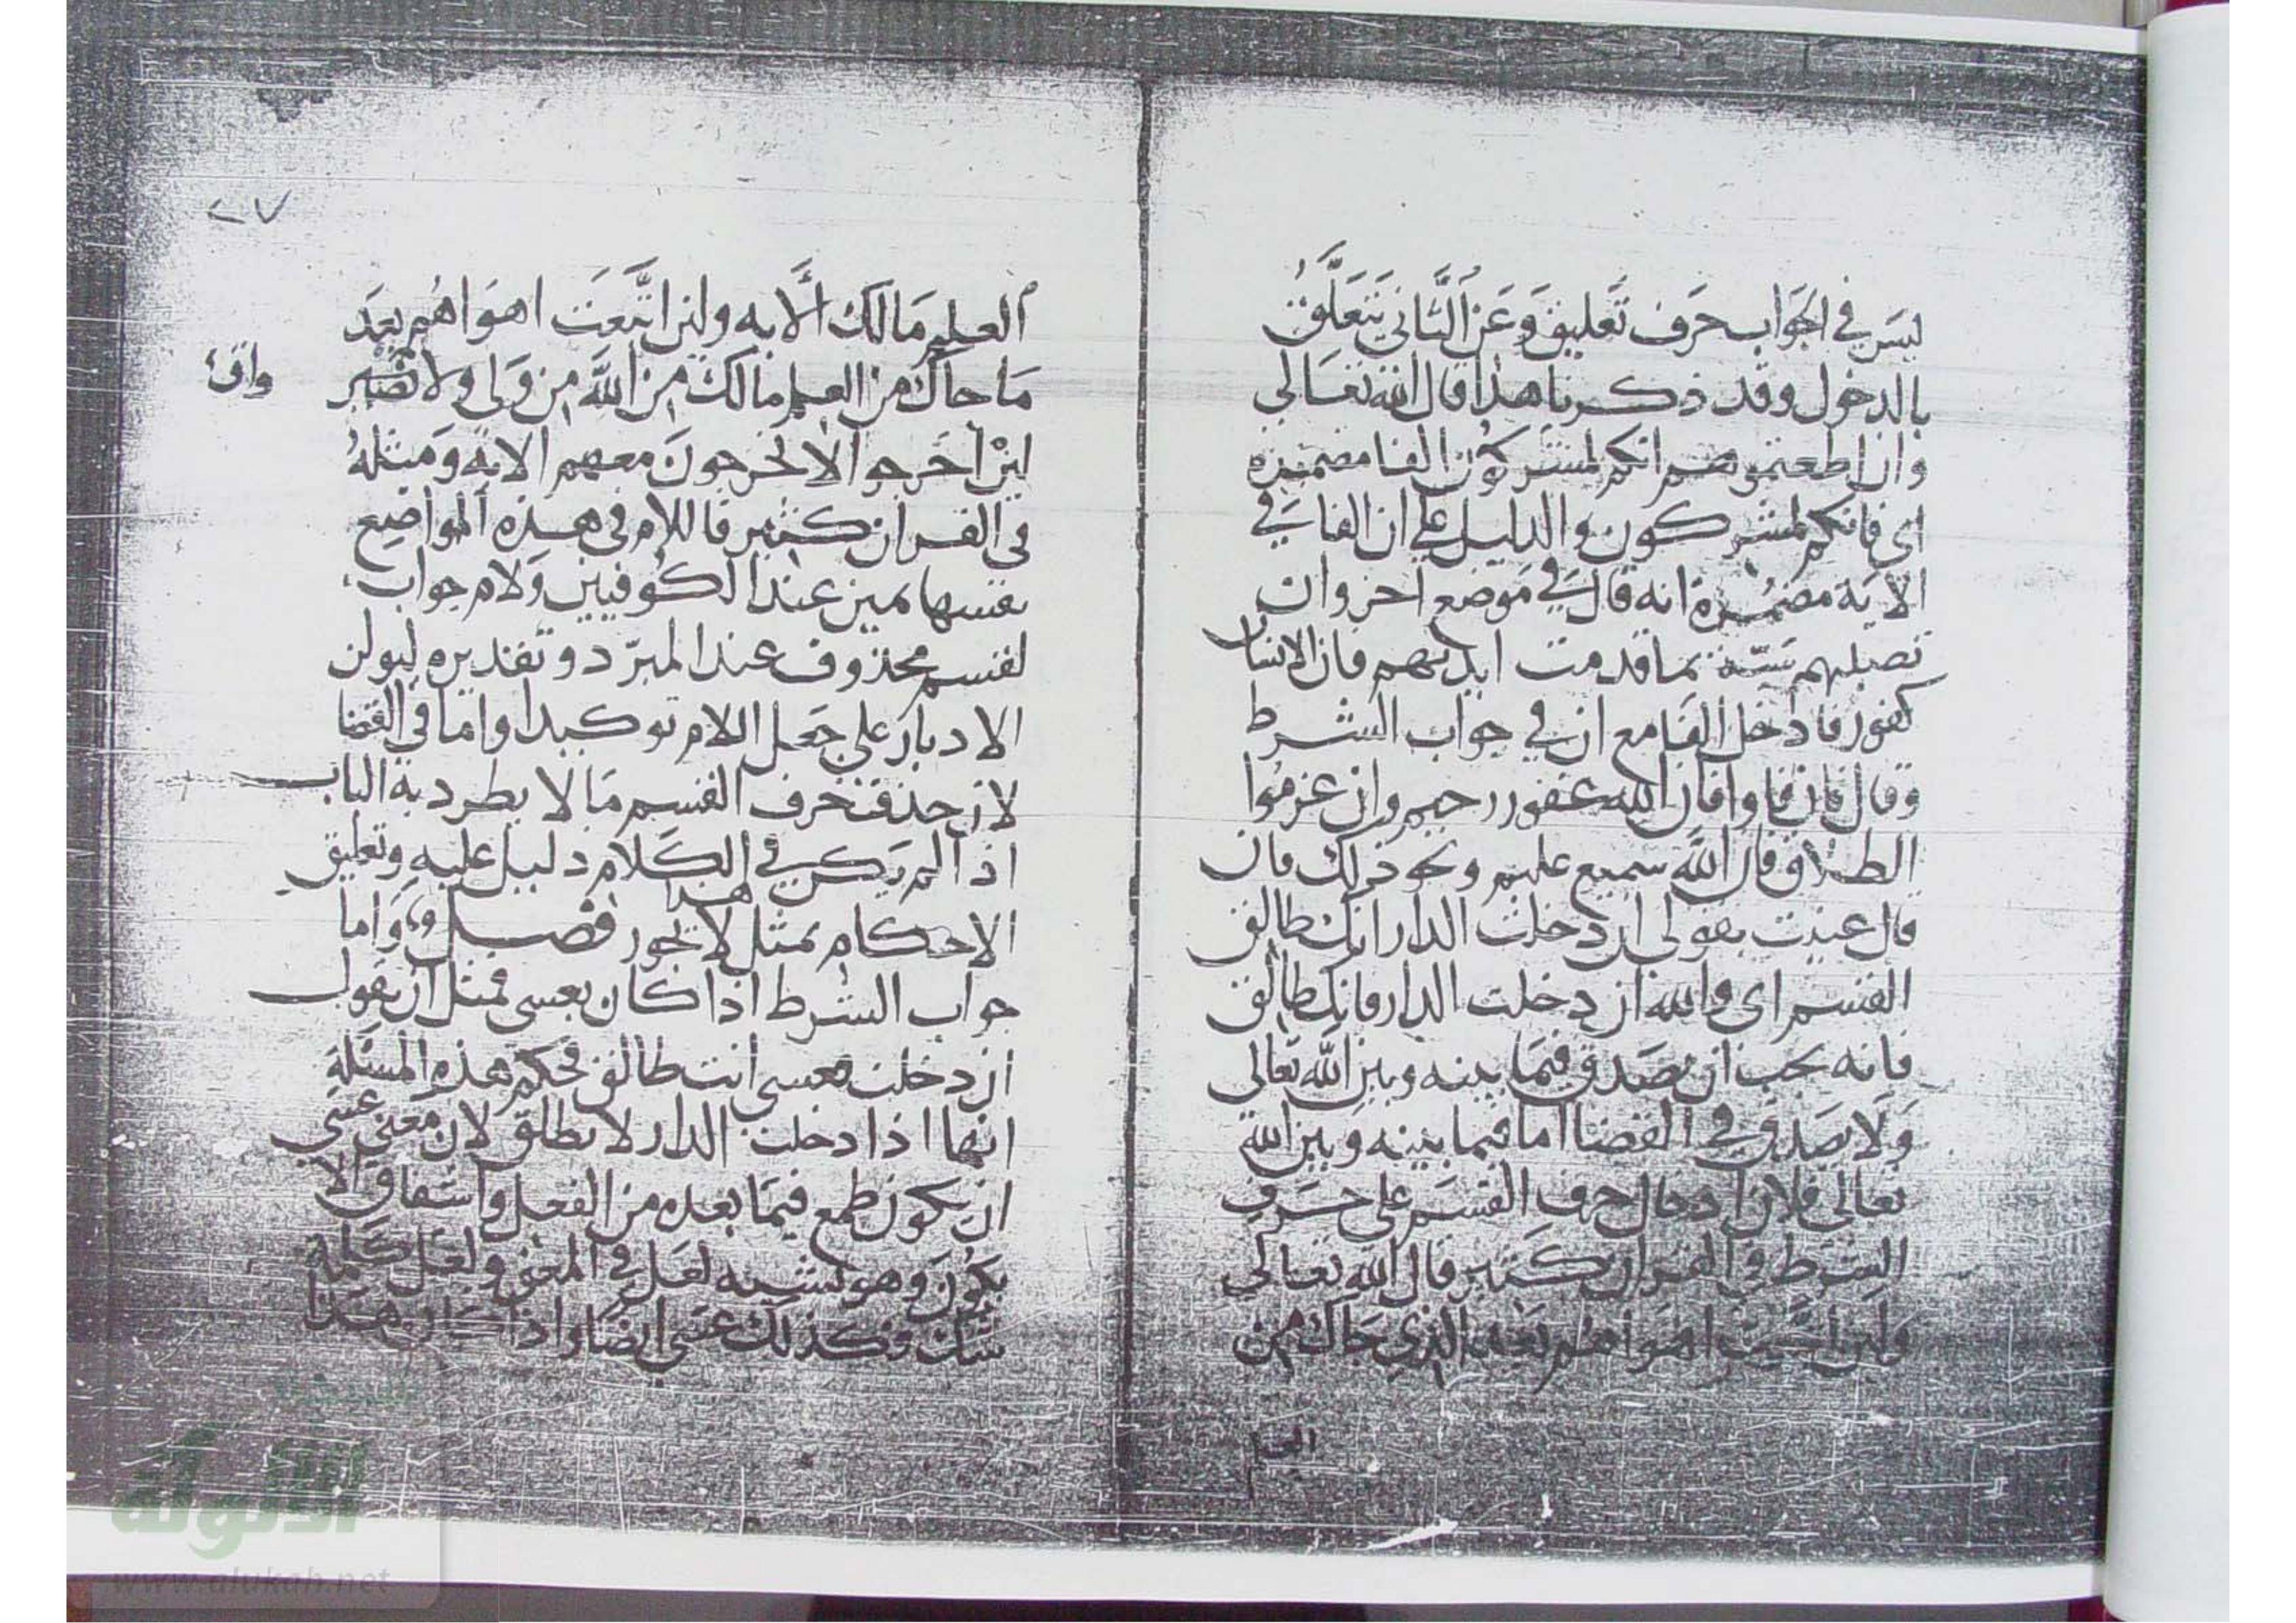 ليس في الجواب حرف تعليق وعن الثاني يتعلق
بالدخول وقد ذكرنا هذا قال الله تعالى
وان اطعتموهم انكم لمشركون الفا مضمرة
اى فانكم لمشركون والدليل على ان الفا في
الاية مضمرة انه قال في موضع اخر وان
تصبهم سيئة بما قدمت ايديهم فان الانسان
كفور فادخل الفا مع ان في جواب الشرط
وقال فان فاوا فان الله غفور رحيم وان عزموا
الطلاق فان الله سميع عليم ونحو ذلك فان
قال عنيت بقولى ان دخلت الدار انك طالق
القسم اى والله ان دخلت الدار فانك طالق
فانه يجب ان يصدق فيما بينه وبين الله تعالى
ولا يصدق في القضا اما فيما بينه وبين الله
تعالى فلان ادخال حرف القسم على حرف
الشرط في القران كثير قال الله تعالى
ولين اتبعت اهواهم بعد الذي جاك من
العلم
العلم مالك الاية ولين اتبعت اهواهم بعد
ما جاك من العلم مالك من الله من ولى ولا
واق
لين اخرجوا لا يخرجون معهم الاية ومثله
في القران كثير فاللام في هذه المواضع
نفسها يمين عند الكوفيين ولام جواب
لقسم محذوف عند المبرد وتقديره ليولن
الادبار على جعل اللام توكيدا واما في القضا
لان حذف حرف القسم مما لا يطرد به الباب
اذا لم يكن في الكلام دليل عليه وتعليق
الاحكام بمثل هذا لا يجوز فصل واما
جواب الشرط اذا كان بعسى فمثل ان يقول
ان دخلت فعسى انت طالق فحكم هذه المسئلة
انها اذا دخلت الدار لا يطلق لان معنى عسى
ان يكون طمع فيما بعده من الفعل واشفاق الا
يكون وهو يشبه لعل في المعنى ولعل كلمة
شك فكذلك عسى ايضا واذا كان هذا
٢٧
الألوكة
www.alukah.net